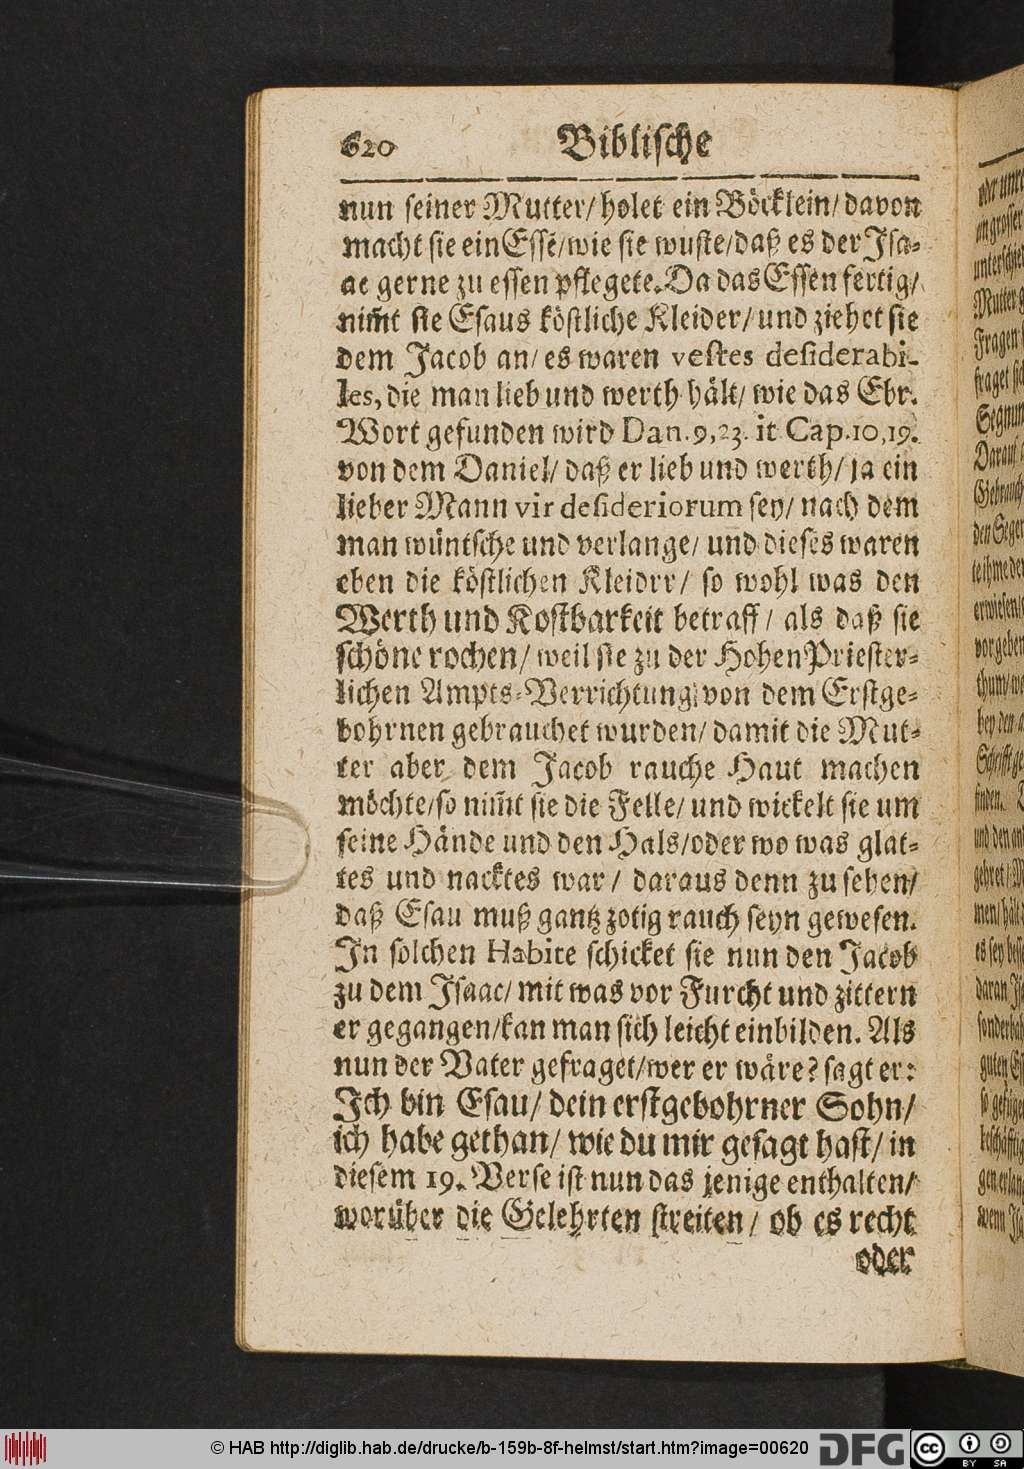 620 Biblische
nun seiner Mutter/ holet ein Böcklein/ davon
macht sie ein Essē/ wie sie wuste/ daß es der Jsa-
ac gerne zu essen pflegete. Da das Essen fertig/
nim̃t sie Esaus köstliche Kleider/ und ziehet sie
dem Jacob an/ es waren vestes desiderabi-
les, die man lieb und werth hält/ wie das Ebr.
Wort gefunden wird Dan. 9,23. it Cap. 10,19.
von dem Daniel/ daß er lieb und werth/ ja ein
lieber Mann vir desideriorum sey/ nach dem
man wüntsche und verlange/ und dieses waren
eben die köstlichen Kleidrr/ so wohl was den
Werth und Kostbarkeit betraff/ als daß sie
schöne rochen/ weil sie zu der Hohen Priester-
lichen Ampts-Verrichtung von dem Erstge-
bohrnen gebrauchet wurden/ damit die Mut-
ter aber dem Jacob rauche Haut machen
möchte/ so nim̃t sie die Felle/ und wickelt sie um
seine Hände und den Hals/ oder wo was glat-
tes und nacktes war/ daraus denn zu sehen/
daß Esau muß gantz zotig rauch seyn gewesen.
In solchen Habite schicket sie nun den Jacob
zu dem Jsaac/ mit was vor Furcht und zittern
er gegangen/ kan man sich leicht einbilden. Als
nun der Vater gefraget/ wer er wäre? sagt er:
Ich bin Esau/ dein erstgebohrner Sohn/
ich habe gethan/ wie du mir gesagt hast/ in
diesem 19. Verse ist nun das jenige enthalten/
worüber die Gelehrten streiten/ ob es recht
oder
© HAB http://diglib.hab.de/drucke/b-159b-8f-helmst/start.htm?image=00620 DFG cc BY SA